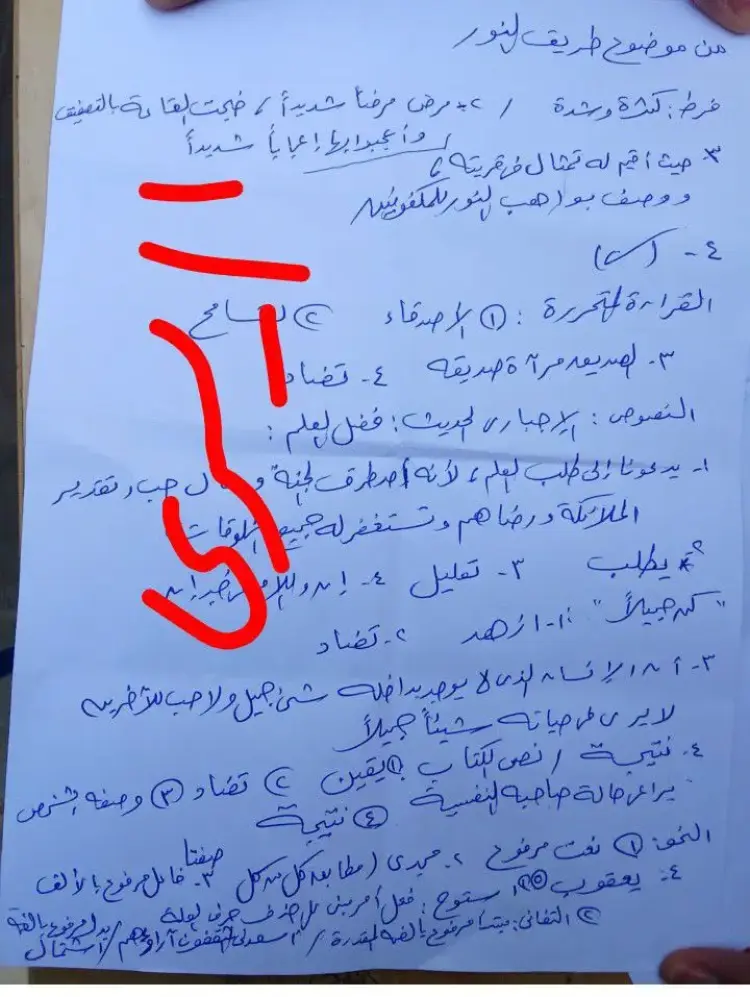 من موضوع طريق النور
فرط: كثرة وشدة / ٢- مرض مرضاً شديداً، ضجت القاعة بالتصفيق
وأعجبوا بها إعجاباً شديداً
٣ حيث أقيم له تمثال فى قريته
ووصف بواهب النور للمكفوفين
٤- (س)
القراءة المتحررة: ① الأصدقاء ② تسامح
٣- الصديق مرآة صديقه ٤- تضاد
النصوص: الإجبارى الحديث: فضل العلم:
١- يدعونا إلى طلب العلم، لأنه أحد طرق الجنة حب وتقدير
الملائكة ورضاهم وتستغفر له جميع المخلوقات
٢ يطلب ٣- تعليل ٤- إن
"كن جميلاً": ١- ازهد ٢- تضاد
٣- أن الإنسان الذى لا يوجد بداخله شئ جميل ولا حب للآخرين
لا يرى فى حياته شيئاً جميلاً
٤- نتيجة / نص الكتاب ① يقين ② تضاد ③ وصفه
حالة صاحبه النفسية ④ نتيجة
النحو: ① نعت مرفوع ٢- / مطابق كل من كل ٣- فاعل مرفوع بالألف
٤- يعقوب: فعل أمر مبنى على حذف حرف
② التفانى: مبتدأ مرفوع بالضمة المقدرة / بدل مرفوع بالضمة / اشتمال